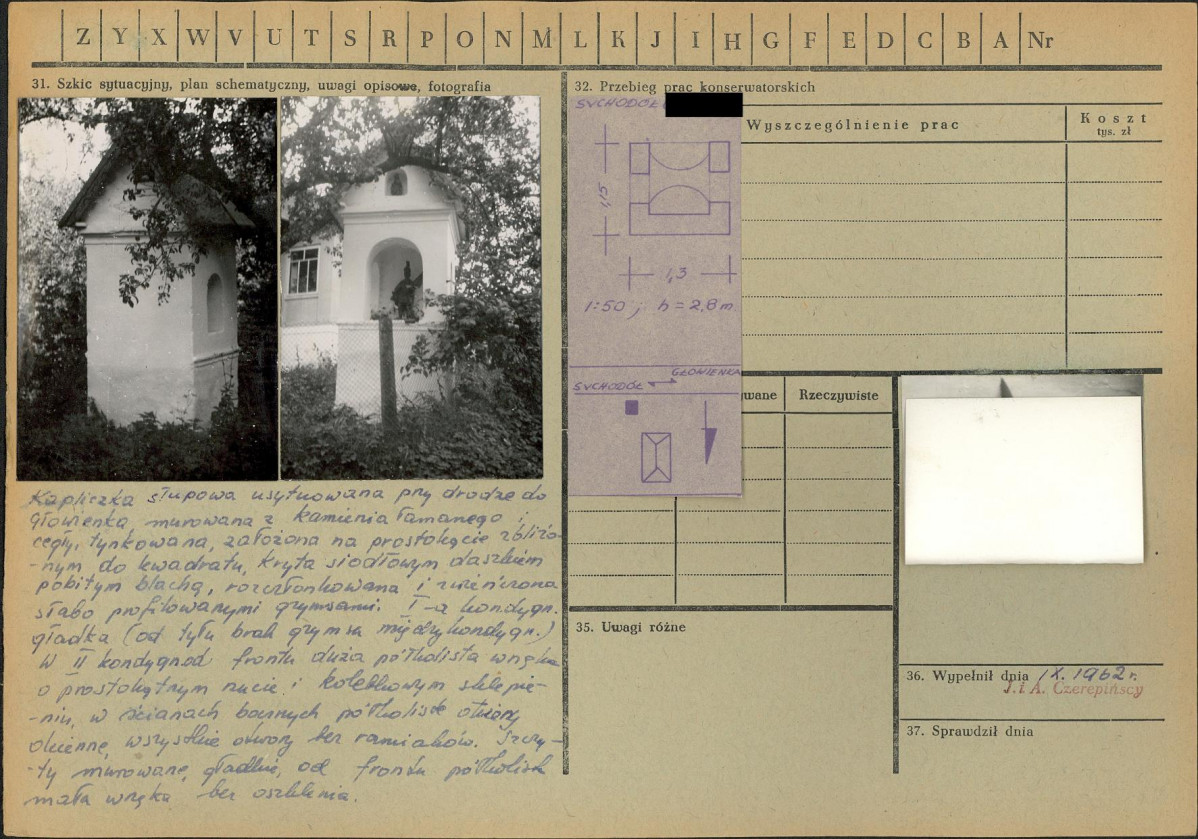 Z Y X W V U T S R P O N M L K J I H G F E D C B A Nr
31. Szkic sytuacyjny, plan schematyczny, uwagi opisowe, fotografia
Kapliczka słupowa usytuowana przy drodze do
Głowienka, murowana z kamienia łamanego i
cegły, tynkowana, założona na prostokącie zbliżo-
-nym do kwadratu, kryta siodłowym daszkiem
pobitym blachą, rozczłonkowana i zwieńczona
słabo profilowanymi gzymsami. I-a kondygn.
gładka (od tyłu brak gzymsu międzykondygn.)
W II kondygn. od frontu duża półkolista wnęka
o prostokątnym rzucie i kolebkowym sklepie-
-niu, w ścianach bocznych półkoliste otwory
okienne, wszystkie otwory bez ramiaków. Szczy-
-ty murowane, gładkie, od frontu półkolista
mała wnęka bez oszklenia.
32. Przebieg prac konserwatorskich
SUCHODÓŁ
Wyszczególnienie prac
Koszt
tys. zł
1,15
1,3
1:50; h = 2,8 m
GŁOWIENKA
SUCHODÓŁ
wane
Rzeczywiste
35. Uwagi różne
36. Wypełnił dnia IX. 1962 r.
J. i A. Czerepińscy
37. Sprawdził dnia